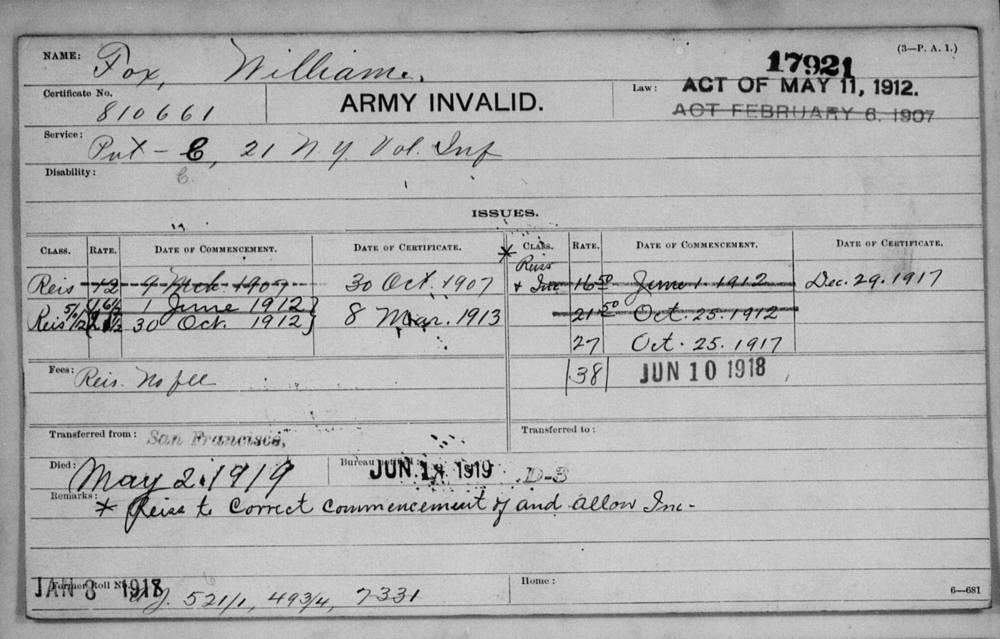 17921
(3—P. A. 1.)
NAME: Fox, William.
Certificate No. 810661
ARMY INVALID.
Law: ACT OF MAY 11, 1912.
ACT FEBRUARY 6, 1907
Service: Pvt - C, 21 N.Y. Vol. Inf
C.
Disability:
ISSUES.
CLASS. RATE. DATE OF COMMENCEMENT. DATE OF CERTIFICATE. * CLASS. RATE. DATE OF COMMENCEMENT. DATE OF CERTIFICATE.
Reis 12 9 Mch 1907 30 Oct. 1907 Reiss + Inc 16 50 June 1. 1912 Dec. 29. 1917
1 June 1912} 21 50 Oct. 25. 1912
Reis 30 Oct. 1912} 8 Mar. 1913
27 Oct. 25. 1917
Fees: Reis. No fee
38 JUN 10 1918
Transferred from: San Francisco.
Transferred to:
Died: May 2. 1919
Bureau JUN 1 1919 D-3
Remarks: * Reiss to correct commencement of and allow Inc-
JAN 8 1918
Former Roll No. 521/1, 493/4, 7331
Home:
6—681